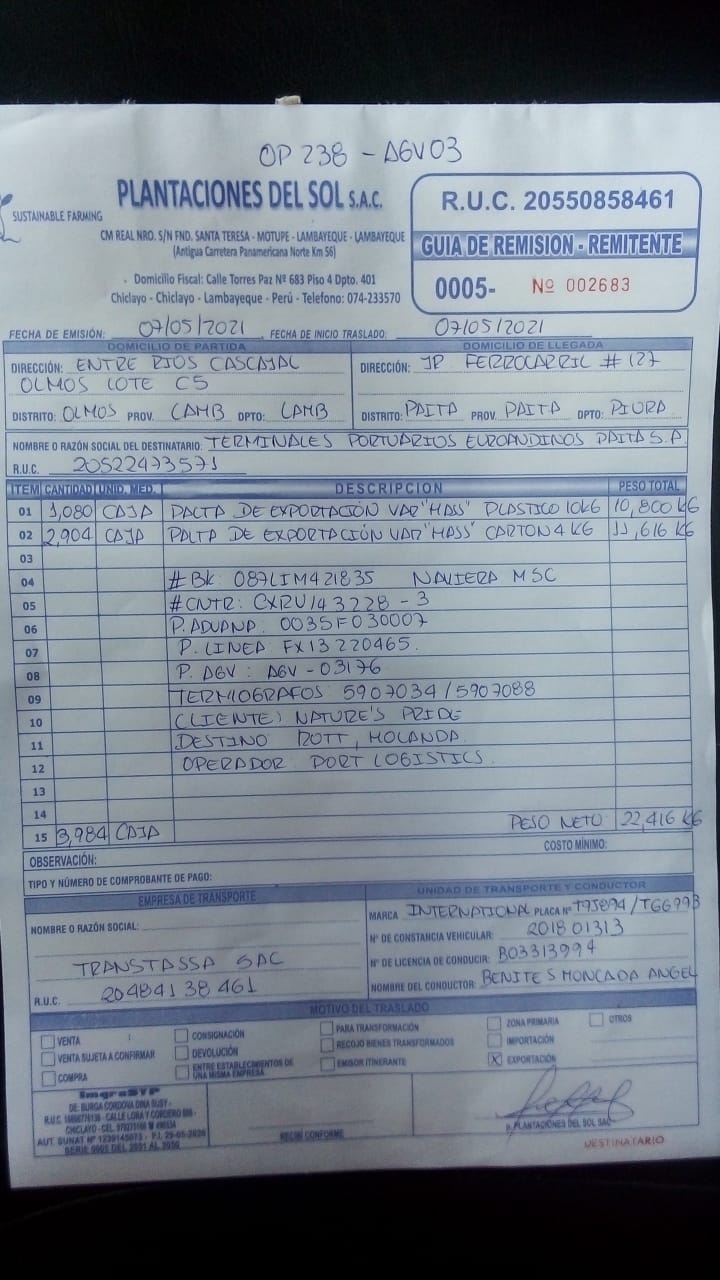 OP 238 - AGV03
SUSTAINABLE FARMING
PLANTACIONES DEL SOL S.A.C.
CM REAL NRO. S/N FND. SANTA TERESA - MOTUPE - LAMBAYEQUE - LAMBAYEQUE
(Antigua Carretera Panamericana Norte Km 56)
Domicilio Fiscal: Calle Torres Paz Nº 683 Piso 4 Dpto. 401
Chiclayo - Chiclayo - Lambayeque - Perú - Telefono: 074-233570
R.U.C. 20550858461
GUIA DE REMISION - REMITENTE
0005- Nº 002683
FECHA DE EMISIÓN: 07/05/2021 FECHA DE INICIO TRASLADO: 07/05/2021
DOMICILIO DE PARTIDA
DIRECCIÓN: ENTRE RIOS CASCAJAL
OLMOS LOTE C5
DISTRITO: OLMOS PROV. LAMB DPTO: LAMB
DOMICILIO DE LLEGADA
DIRECCIÓN: JR FERROCARRIL # 127
DISTRITO: PAITA PROV. PAITA DPTO: PIURA
NOMBRE O RAZÓN SOCIAL DEL DESTINATARIO: TERMINALES PORTUARIOS EUROANDINOS PAITA S.A.
R.U.C. 20522473571
ITEM CANTIDAD UNID. MED. DESCRIPCION PESO TOTAL
01 1,080 CAJA PALTA DE EXPORTACIÓN VAR "HASS" PLASTICO 10KG 10,800 KG
02 2,904 CAJA PALTA DE EXPORTACIÓN VAR "HASS" CARTON 4 KG 11,616 KG
03
04 # BK: 087LIM421835 NAVIERA MSC
05 # CNTR: CXRU143228-3
06 P. ADUANA 0035F030007
07 P. LINEA FX13220465.
08 P. AGV: AGV-03176
09 TERMOGRAFOS 5907034/5907088
10 (CLIENTE) NATURE'S PRIDE
11 DESTINO ROTT, HOLANDA
12 OPERADOR PORT LOGISTICS
13
14
15 3,984 CAJA PESO NETO 22,416 KG
COSTO MÍNIMO:
OBSERVACIÓN:
TIPO Y NÚMERO DE COMPROBANTE DE PAGO:
EMPRESA DE TRANSPORTE
NOMBRE O RAZÓN SOCIAL:
TRANSTASSA SAC
R.U.C. 20484138461
UNIDAD DE TRANSPORTE Y CONDUCTOR
MARCA INTERNATIONAL PLACA Nº T9J894/TGG993
Nº DE CONSTANCIA VEHICULAR: 201801313
Nº DE LICENCIA DE CONDUCIR: B03313994
NOMBRE DEL CONDUCTOR: BENITES MONCADA ANGEL
MOTIVO DEL TRASLADO
VENTA
VENTA SUJETA A CONFIRMAR
COMPRA
CONSIGNACIÓN
DEVOLUCIÓN
ENTRE ESTABLECIMIENTOS DE
UNA MISMA EMPRESA
PARA TRANSFORMACIÓN
RECOJO BIENES TRANSFORMADOS
EMISOR ITINERANTE
ZONA PRIMARIA
IMPORTACIÓN
X EXPORTACIÓN
OTROS
DE: BURGA CORDOVA DINA SUSY -
CALLE LORA Y CORDERO
CHICLAYO - CEL.
AUT. SUNAT Nº
SERIE 0005 DEL 2001 AL
RECIBÍ CONFORME
P. PLANTACIONES DEL SOL SAC
DESTINATARIO